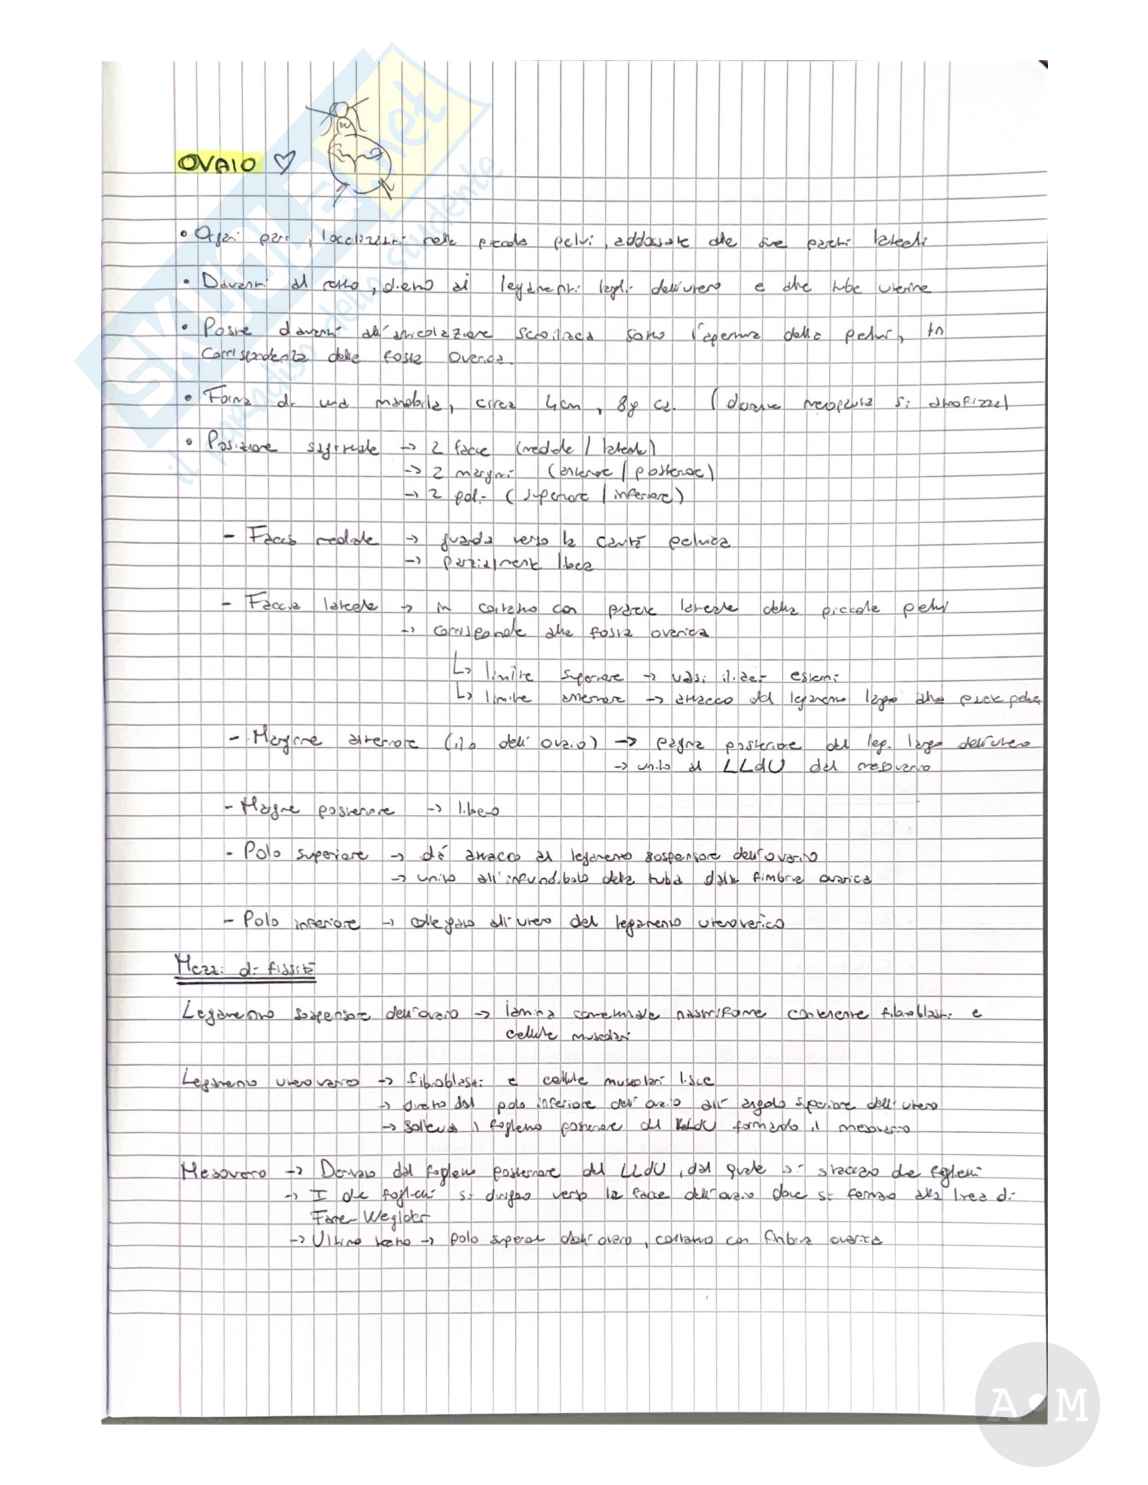 OVAIO
• Organi pari, localizzati nella piccola pelvi, addossate alle due pareti laterali
• Davanti al retto, dietro ai legamenti larghi dell'utero e alle tube uterine
• Poste davanti all'articolazione sacroiliaca sotto l'apertura della pelvi, in
corrispondenza della fossa ovarica.
• Forma di una mandorla, circa 4cm, 8g ca. (durante menopausa si atrofizza)
• Posizione sagittale → 2 facce (mediale / laterale)
→ 2 margini (anteriore / posteriore)
→ 2 poli (superiore / inferiore)
- Faccia mediale → guarda verso la cavità pelvica
→ parzialmente libera
- Faccia laterale → in contatto con parete laterale della piccola pelvi
→ corrisponde alla fossa ovarica
↳ limite superiore → vasi iliaci esterni
↳ limite anteriore → attacco del legamento largo alla parete pelvica
- Margine anteriore (ilo dell'ovaio) → pagina posteriore del leg. largo dell'utero
→ unito al LLdU dal mesovario
- Margine posteriore → libero
- Polo superiore → dà attacco al legamento sospensore dell'ovario
→ unito all'infundibolo della tuba dalla fimbria ovarica
- Polo inferiore → collegato all'utero dal legamento uteroovarico
Mezzi di fissità
Legamento sospensore dell'ovaio → lamina connettivale nastriforme contenente fibroblasti e
cellule muscolari
Legamento uteroovarico → fibroblasti e cellule muscolari lisce
→ dal polo inferiore dell'ovaio all'angolo superiore dell'utero
→ solleva il foglietto posteriore del LLdU formando il mesovario
Mesovario → Derivato dal foglietto posteriore del LLdU, dal quale si staccano due foglietti
→ I due foglietti si dirigono verso la faccia dell'ovaio dove si fermano alla linea di
Farre-Waldeyer
→ Ultimo tratto → polo superiore dell'ovaio, contatto con fimbria ovarica
SKUOLA.net
il paradiso dello studente
A M